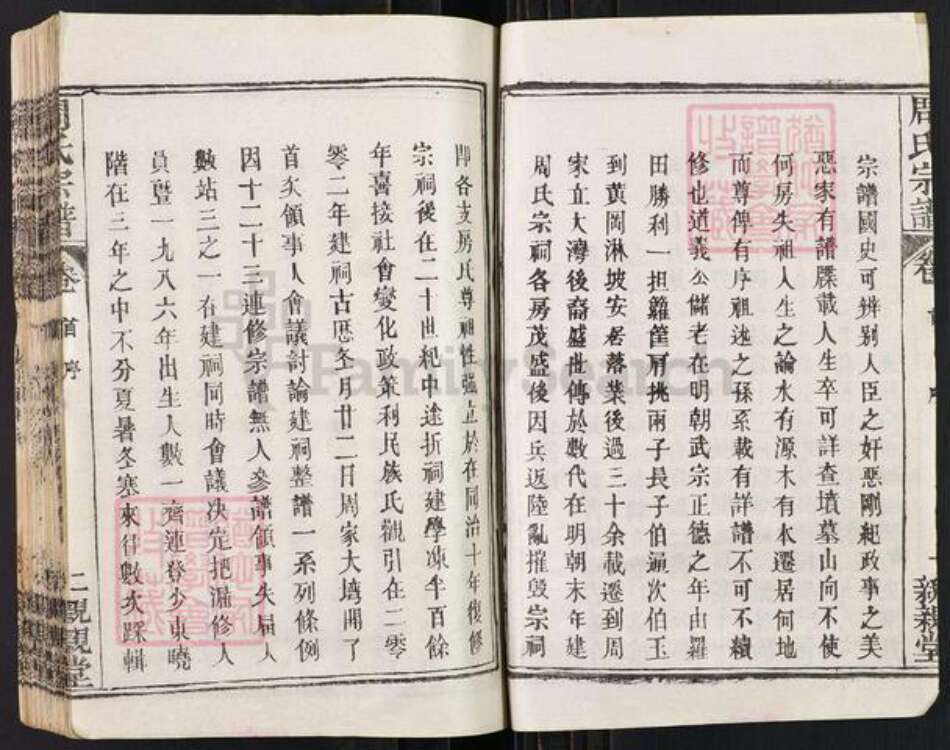 周氏宗譜
卷
親親堂
宗譜國史可辨别人臣之奸惡剛紀政事之美
惡家有譜牒載人生卒可詳查墳墓山向不使
何房失祖人生之論水有源木有本遷居何地
而尊俾有序祖述之孫系載有詳譜不可不續
修也道義公儲老在明朝武宗正德之年由羅
田勝利一担籮筐肩挑兩子長子伯通次伯玉
到黄岡淋坡安居落業後過三十余載遷到周
家立大灣後裔盛世傳於數代在明朝末年建
周氏宗祠各房茂盛後因兵返陸亂摧毁宗祠
即各支房氏尊祖性强立於在同治十年復修
宗祠後在二十世紀中途折祠建學凍半百餘
年喜接社會變化政策利民族氏觀引在二零
零二年建祠古历冬月廿二日周家大塆開了
首次領事人會議討論建祠整譜一系列條例
因十二二十三連修宗譜無人參譜領事失届人
數站三之一在建祠同時會議决定把漏修人
員暨一九八六年出生人數一齊連登少東曉
階在三年之中不分夏暑冬塞來往數次踩輯
周氏宗譜
卷首 序
二 親親堂
FamilySearch